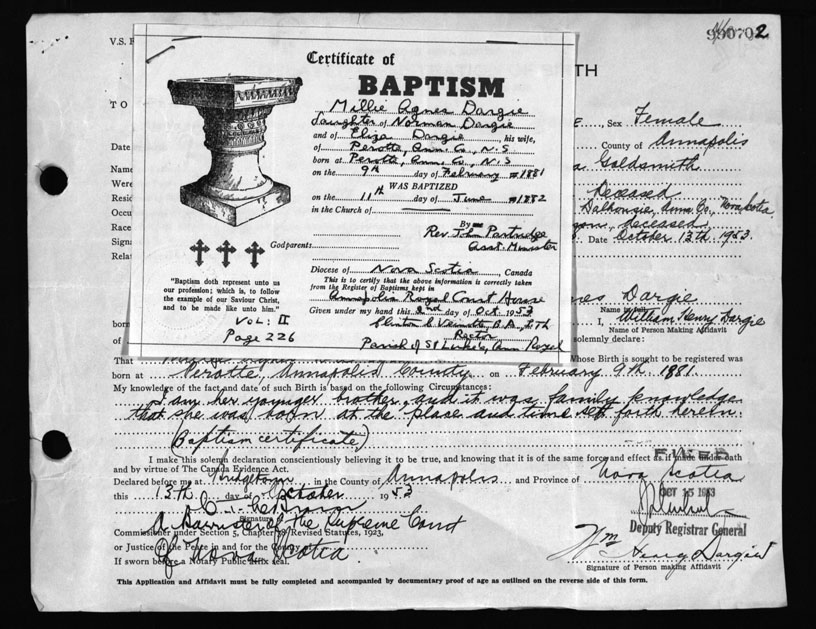 990702
V.S. F
TH
Certificate of
BAPTISM
Millie Agnes Dargie
daughter of Norman Dargie
and of Eliza Dargie, his wife,
of Perotte, Ann. Co., N.S
born at Perotte, Ann. Co., N.S
on the 9th day of February 1881
WAS BAPTIZED
on the 11th day of June 1882
in the Church of
By
Rev. John Partridge
Asst. Minister
Godparents:
Diocese of Nova Scotia, Canada
This is to certify that the above information is correctly taken
from the Register of Baptisms kept in
Annapolis Royal Court House
Given under my hand this 2nd day of Oct. 1953
Rector
Parish of St Luke's, Ann. Royal
"Baptism doth represent unto us
our profession; which is, to follow
the example of our Saviour Christ,
and to be made like unto him."
Vol: II
Page 226
TO
Date
Name
Were
Resid
Occu
Race
Signa
Relat
E, Sex Female
County of Annapolis
a Goldsmith
Deceased
Dalhousie, Anna. Co., Nova Scotia
deceased
Date October 13th 1953.
nes Dargie
Name in full
born I, William Henry Dargie
Name of Person Making Affidavit
of solemnly declare:
That Whose Birth is sought to be registered was
born at Perotte, Annapolis County on February 9th 1881
My knowledge of the fact and date of such Birth is based on the following Circumstances:
I am her younger brother and it was family knowledge
that she was born at the place and time set forth herein.
(Baptism certificate)
I make this solemn declaration conscientiously believing it to be true, and knowing that it is of the same force and effect as if made under oath
and by virtue of The Canada Evidence Act.
FILED
Declared before me at Bridgetown, in the County of Annapolis and Province of Nova Scotia
this 13th day of October 1953
OCT 15 1953
Deputy Registrar General
Signature of
A Barrister of the Supreme Court
Commissioner under Section 5, Chapter Revised Statutes, 1923,
or Justice of the Peace in and for the County
of Nova Scotia
If sworn before a Notary Public affix seal.
Wm Henry Dargie
Signature of Person making Affidavit
This Application and Affidavit must be fully completed and accompanied by documentary proof of age as outlined on the reverse side of this form.